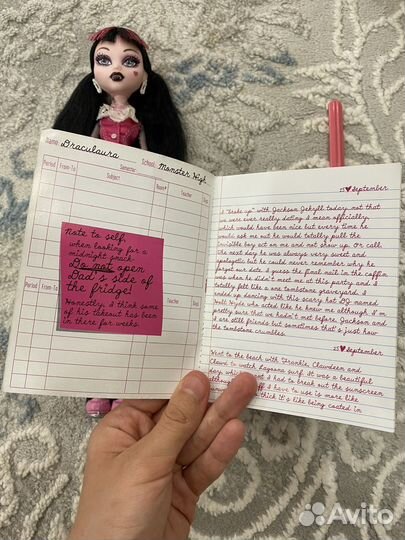 Name: Draculaura School: Monster High
Period From-To Semester Room# Teacher Day
Subject
Note to self,
when looking for a
midnight snack-
Do not open
Dad's side of
the fridge!
Honestly, I think some
of his takeout has been
in there for weeks.
Period From-To Teacher Day
15 ♥ September
I "broke up" with Jackson Jekyll today not that
we were ever really dating I mean officially,
which would have been nice but every time he
would ask me out he would totally pull the
invisible boy act on me and not show up. Or call.
The next day he was always very sweet and
apologetic but he could never remember why he
forgot our date. I guess the final nail in the coffin
was when he didn't meet me at this party and I
totally felt like a one tombstone graveyard. I
ended up dancing with this scary hot DJ named
Holt Hyde who acted like he knew me although I'm
pretty sure that we hadn't met before. Jackson and
I are still friends but sometimes that's just how
the tombstone crumbles.
25 ♥ September
Went to the beach with Frankie, Clawdeen and
Clawd to watch Lagoona surf. It was a beautiful
day, which meant I had to break out the sunscreen
although the stuff I have to use is more like
think it's like being coated in
Avito